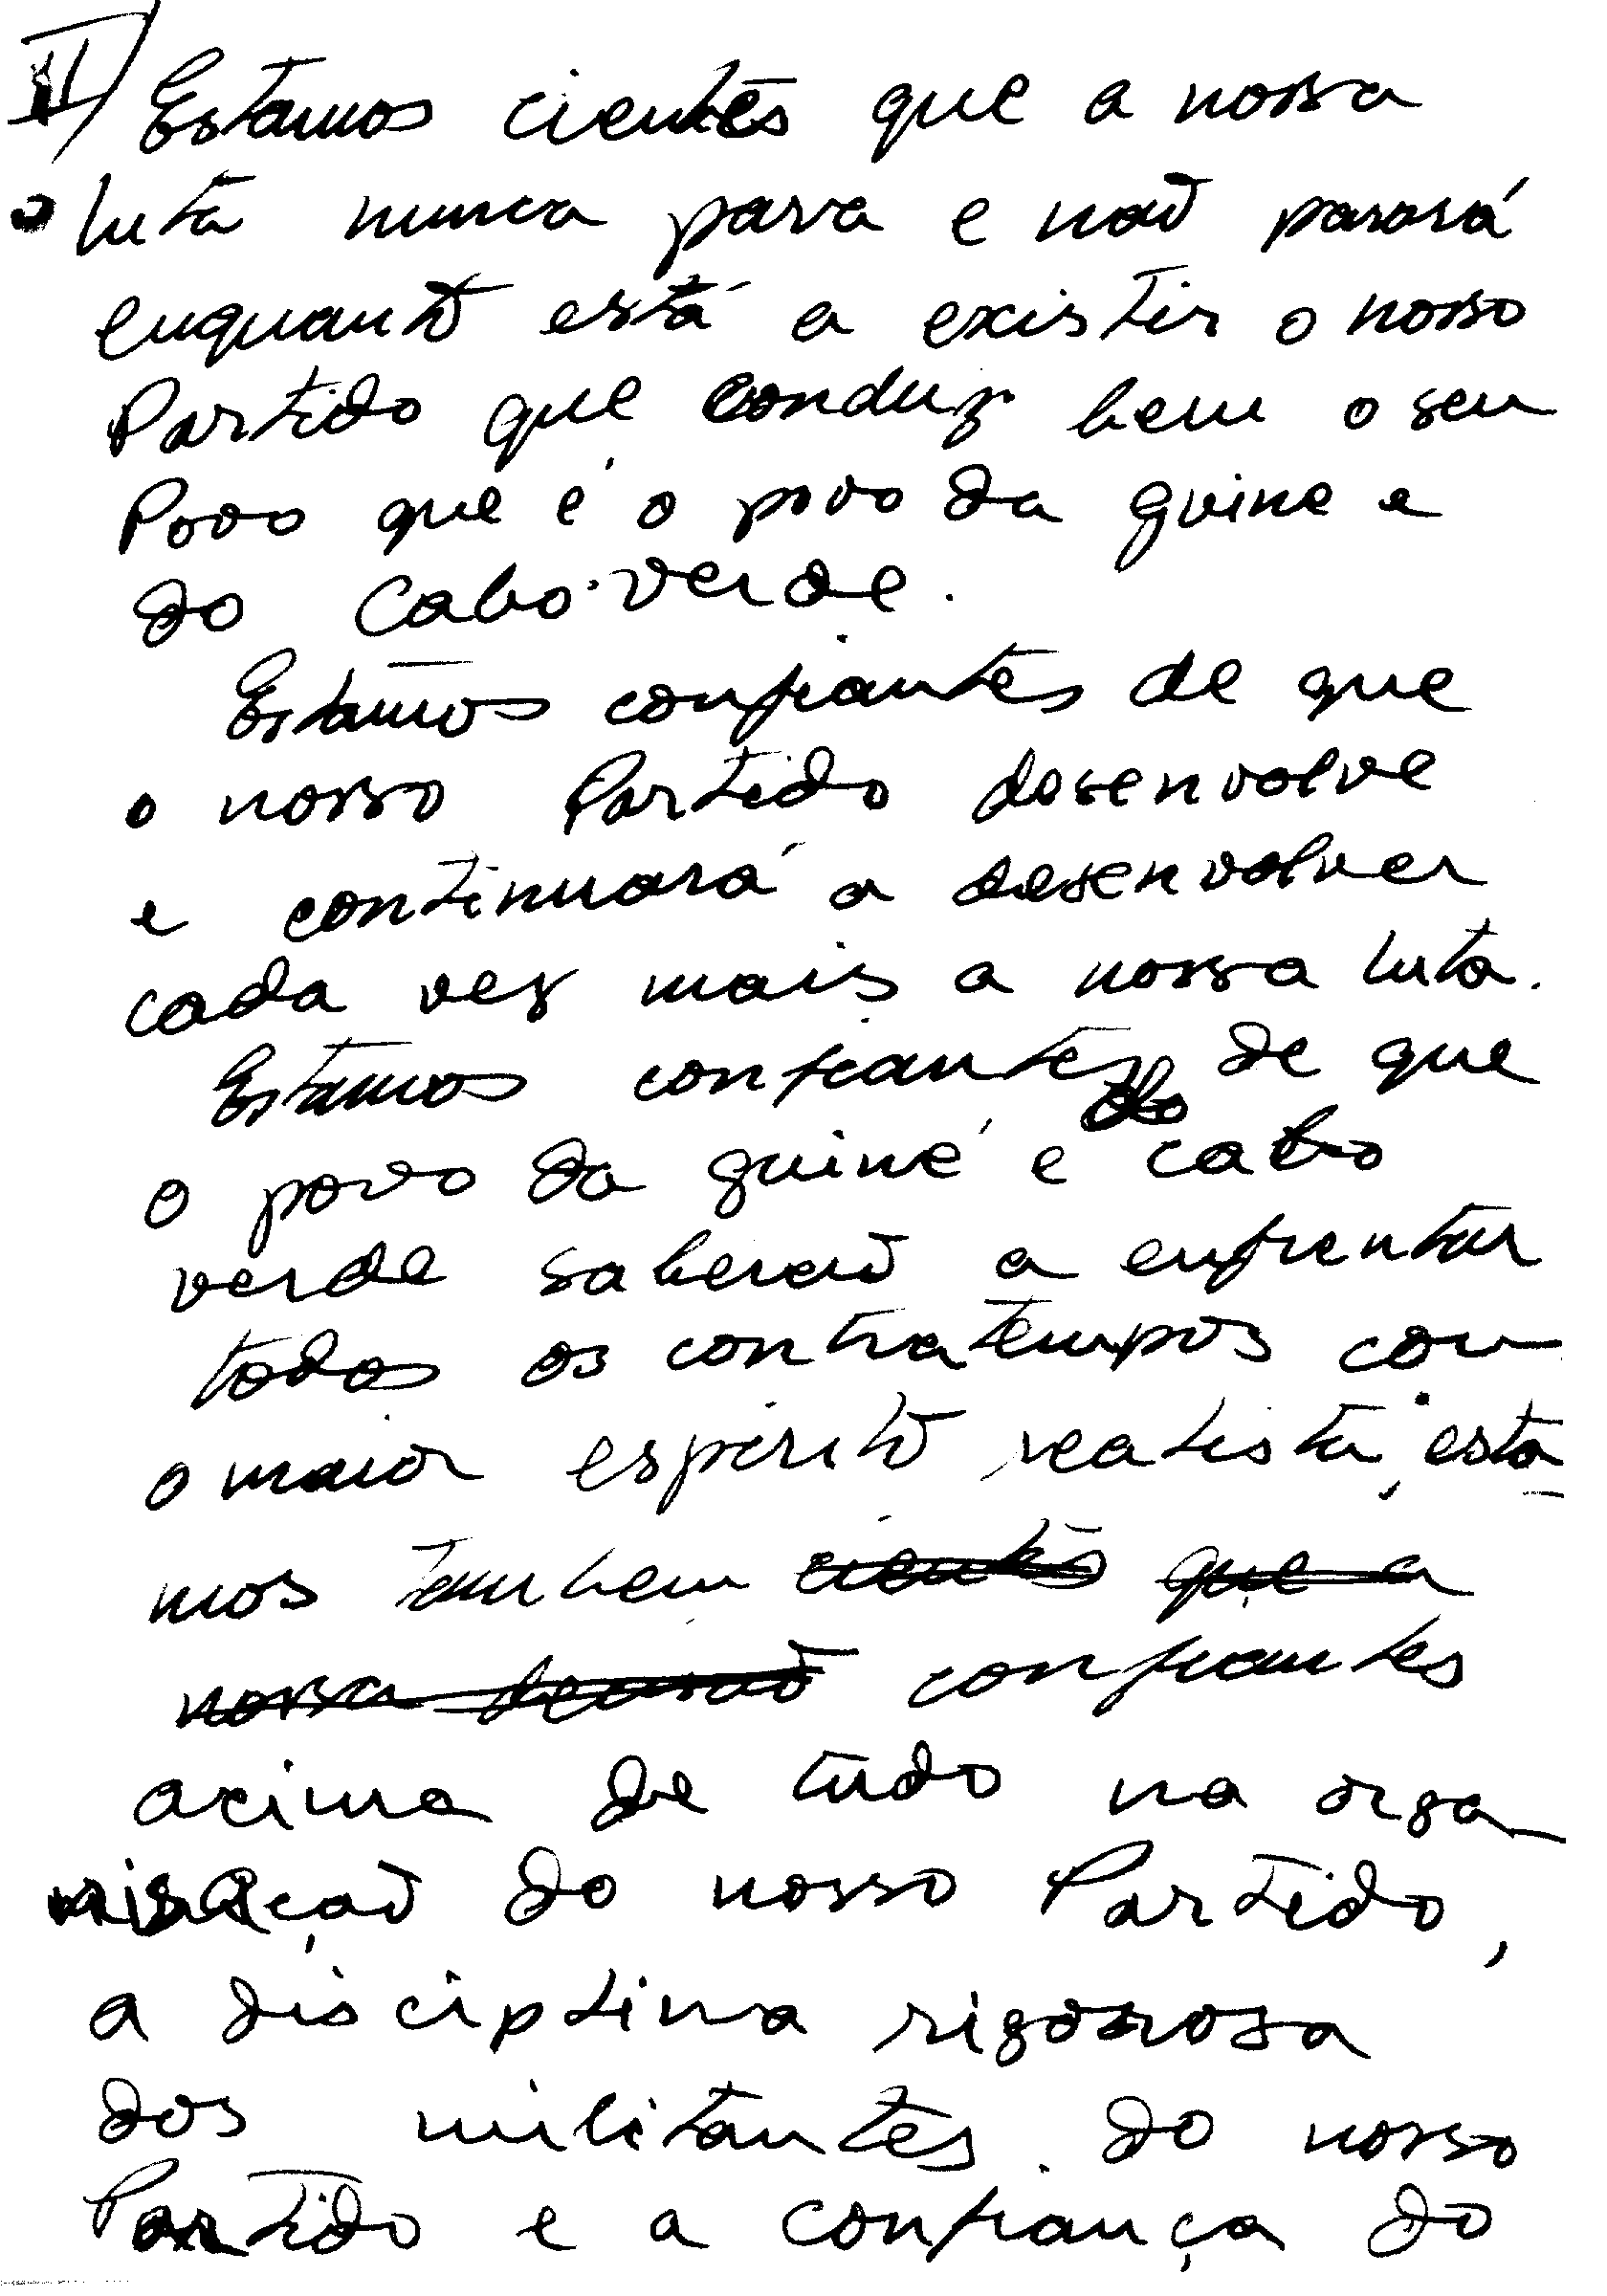 II/ Estamos cientes que a nossa
luta nunca para e não parará
enquanto está a existir o nosso
Partido que conduz bem o seu
Povo que é o povo da guine e
do Cabo-verde.
Estamos confiantes de que
o nosso Partido desenvolve
e continuará a desenvolver
cada vez mais a nossa luta.
Estamos confiantes de que
o povo da guiné e do cabo
verde saberão a enfrentar
todos os contratempos com
o maior espirito realista, esta
mos tambem cientes que a
nossa decisão confiantes
acima de tudo na orga
nisação do nosso Partido,
a disciplina rigorosa
dos militantes do nosso
Partido e a confiança do